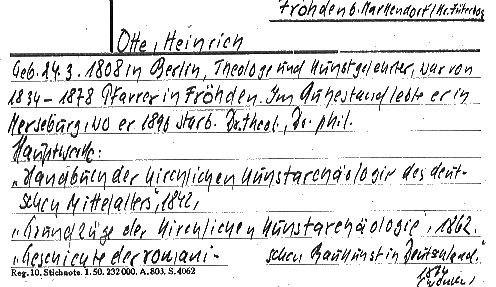 Fröhden b. Markendorf/Kr. Jüterbog
Otte, Heinrich
Geb. 24.3.1808 in Berlin, Theologe und Kunstgelehrter, war von
1834-1878 Pfarrer in Fröhden. Im Ruhestand lebte er in
Merseburg wo er 1890 starb. Dr. theol., Dr. phil.
Hauptwerke:
"Handbuch der kirchlichen Kunstarchäologie des deut-
schen Mittelalters", 1842,
"Grundzüge der kirchlichen Kunstarchäologie", 1862.
"Geschichte der romani- schen Baukunst in Deutschland."
Reg. 10. Stichnote. 1. 50. 232000. A. 803. S. 4062